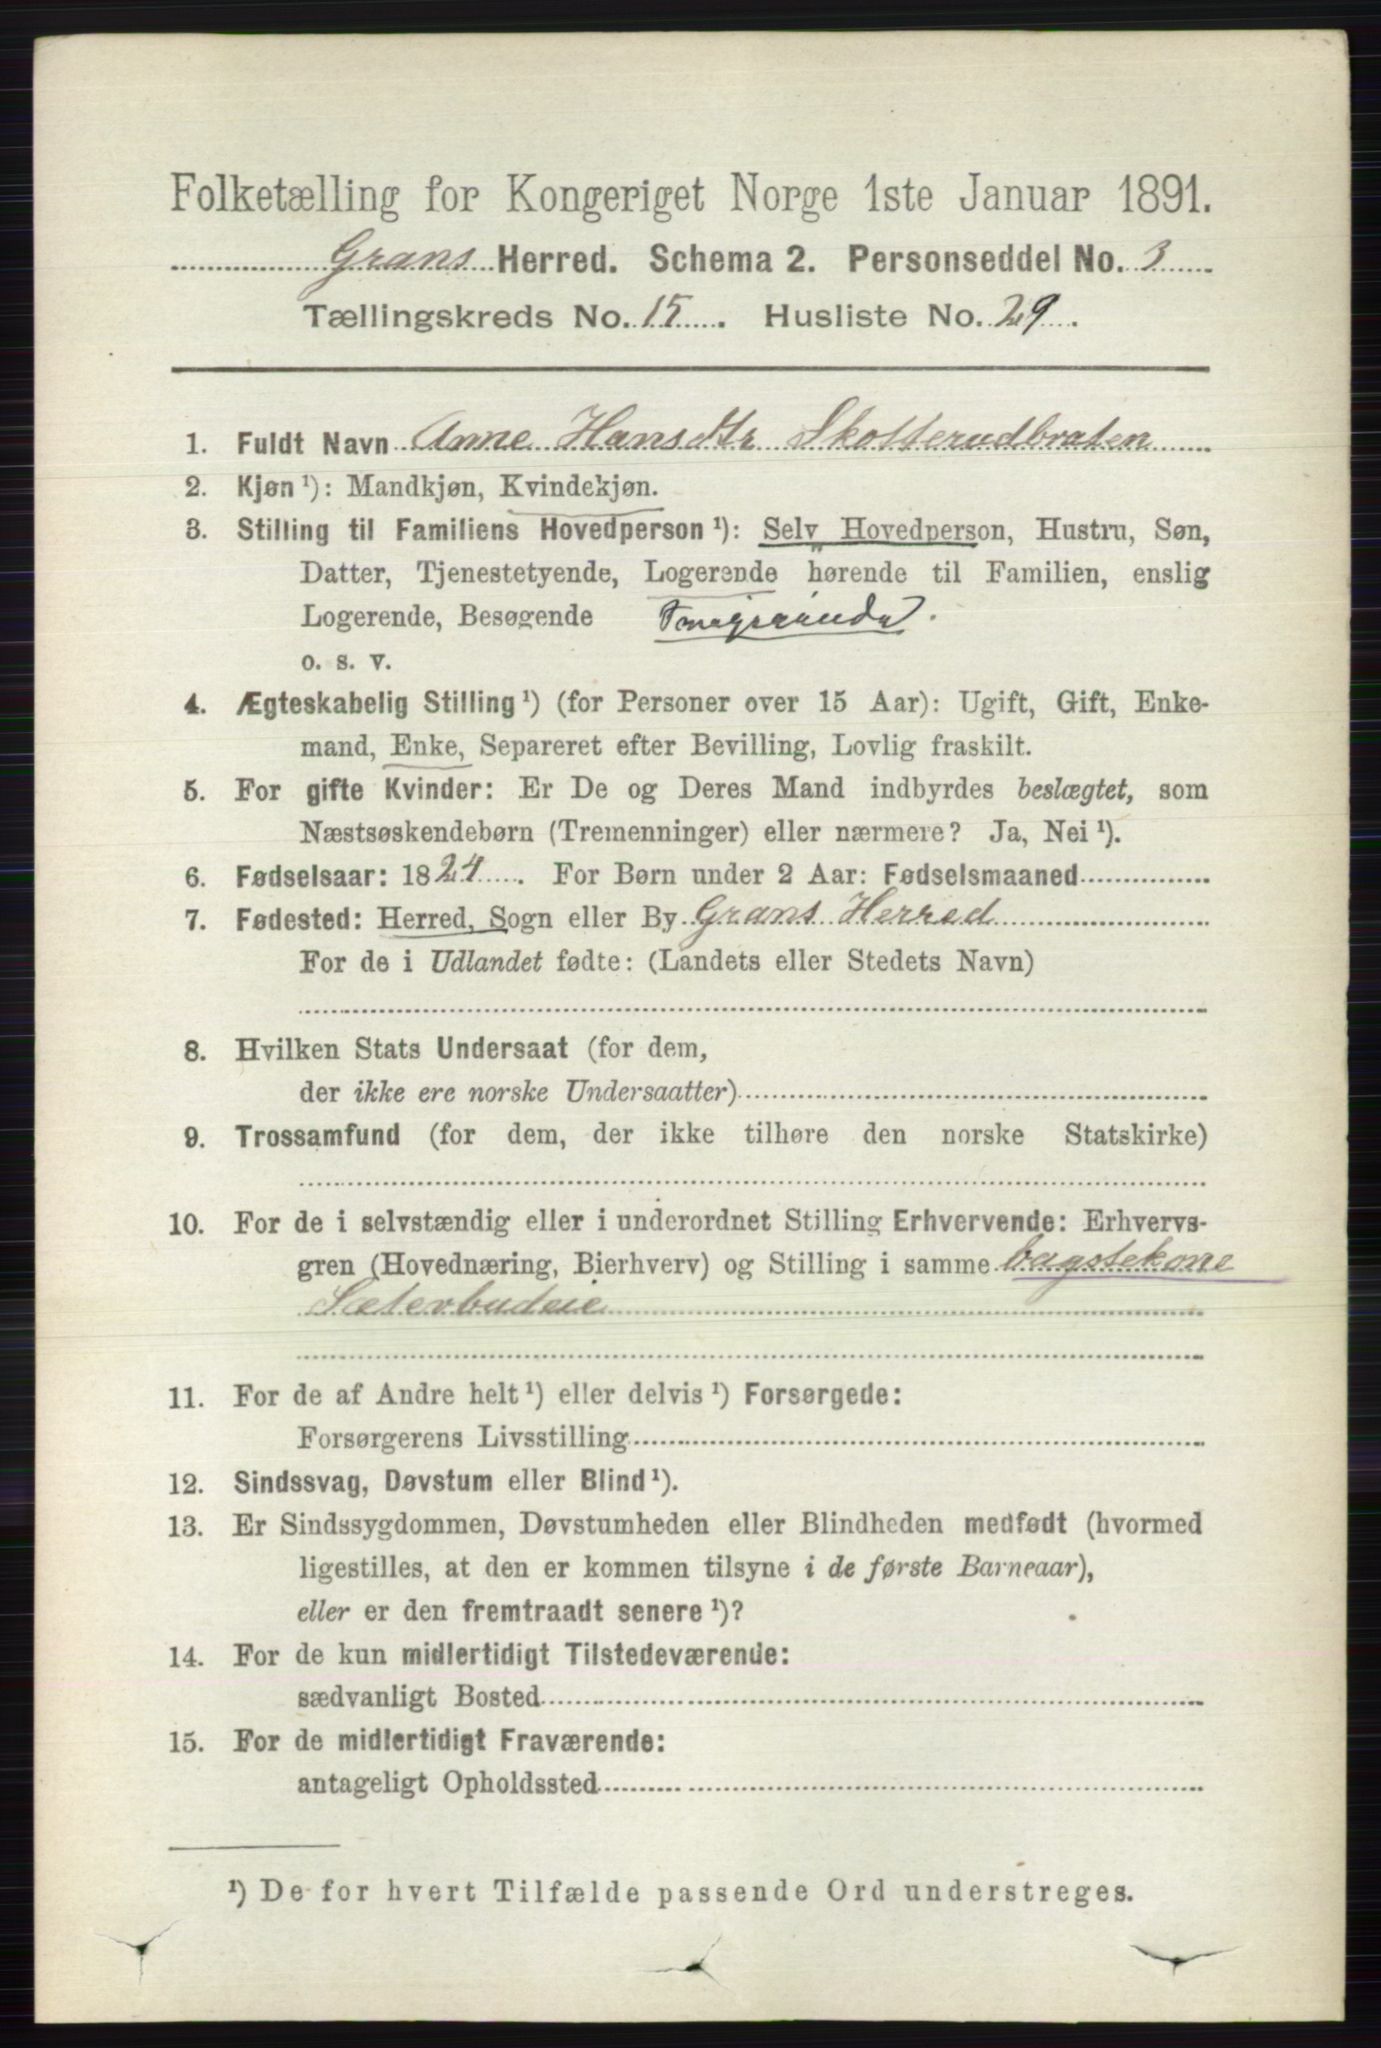 Folketælling for Kongeriget Norge 1ste Januar 1891.
Grans Herred. Schema 2. Personseddel No. 3
Tællingskreds No. 15. Husliste No. 29.
1. Fuldt Navn Anne Hansdtr Skotterudbraten
2. Kjøn ¹): Mandkjøn, Kvindekjøn.
3. Stilling til Familiens Hovedperson ¹): Selv Hovedperson, Hustru, Søn,
Datter, Tjenestetyende, Logerende hørende til Familien, enslig
Logerende, Besøgende
o. s. v.
4. Ægteskabelig Stilling ¹) (for Personer over 15 Aar): Ugift, Gift, Enke-
mand, Enke, Separeret efter Bevilling, Lovlig fraskilt.
5. For gifte Kvinder: Er De og Deres Mand indbyrdes beslægtet, som
Næstsøskendebørn (Tremenninger) eller nærmere? Ja, Nei ¹).
6. Fødselsaar: 1824. For Børn under 2 Aar: Fødselsmaaned
7. Fødested: Herred, Sogn eller By Grans Herred
For de i Udlandet fødte: (Landets eller Stedets Navn)
8. Hvilken Stats Undersaat (for dem,
der ikke ere norske Undersaatter)
9. Trossamfund (for dem, der ikke tilhøre den norske Statskirke)
10. For de i selvstændig eller i underordnet Stilling Erhvervende: Erhvervs-
gren (Hovednæring, Bierhverv) og Stilling i samme bagstekone
Sæterbudeie
11. For de af Andre helt ¹) eller delvis ¹) Forsørgede:
Forsørgerens Livsstilling
12. Sindssvag, Døvstum eller Blind ¹).
13. Er Sindssygdommen, Døvstumheden eller Blindheden medfødt (hvormed
ligestilles, at den er kommen tilsyne i de første Barneaar),
eller er den fremtraadt senere ¹)?
14. For de kun midlertidigt Tilstedeværende:
sædvanligt Bosted
15. For de midlertidigt Fraværende:
antageligt Opholdssted
¹) De for hvert Tilfælde passende Ord understreges.